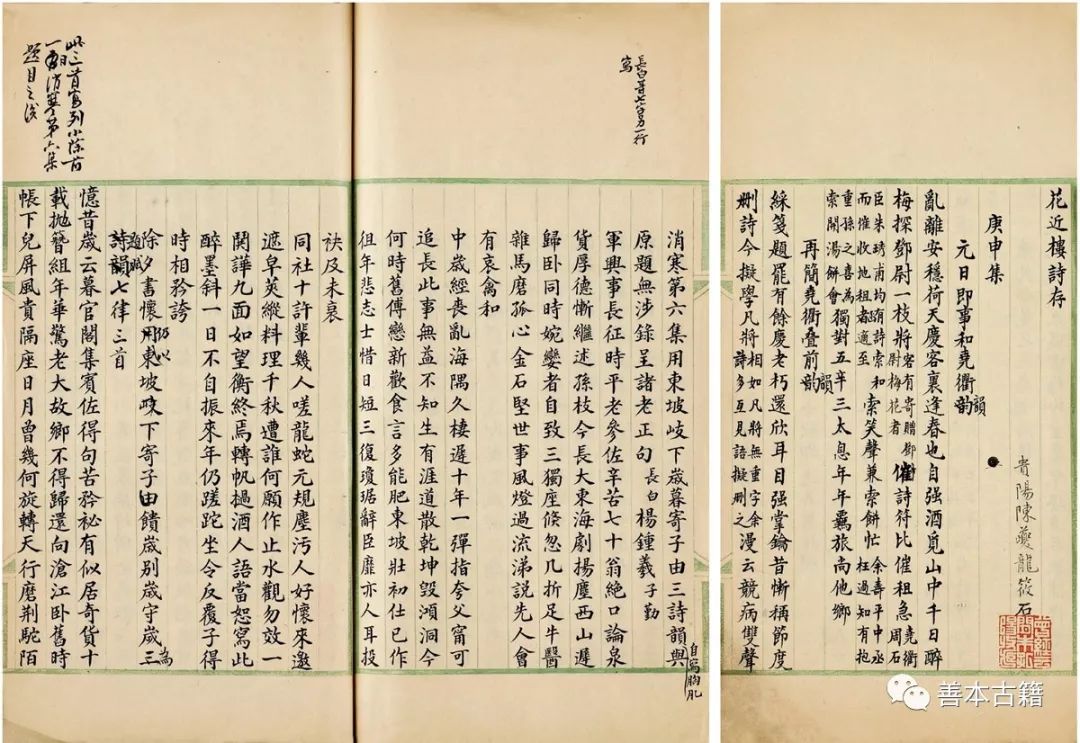 花近樓詩存
貴陽陳夔龍筱石
庚申集
元日即事和堯衢韻
韻
亂離安穩荷天慶客裏逢春也自强酒覓山中千日醉
梅探鄧尉一枝將客有寄贈鄧尉梅花者催詩符比催租急堯衢周石
臣朱琇甫均詩索和而催收地租者適至索笑聲兼索餅忙余壽平中丞枉過知有抱
重孫之喜為索開湯餅會獨對五辛三太息年年羈旅尚他鄉
再簡堯衢叠前韻
韻
綵箋題罷有餘慶老朽還欣耳目强掌鑰昔慚稱節度
刪詩今擬學凡將相如凡將無重字余詩多互見語擬刪之漫云競病雙聲
長白等七字另一行
寫
消寒第六集用東坡岐下歲暮寄子由三詩韻與
原題無涉錄呈諸老正句 長白楊鍾羲子勤
軍興事長征時平老參佐辛苦七十翁絕口論泉
貨厚德慚繼述孫枝今長大東海劇揚塵西山遲
歸卧同時婉孌者自致三獨座倏忽几折足牛醫
雜馬磨孤心金石堅世事風燈過流涕說先人會
有哀禽和
中歲經喪亂海隅久棲遲十年一彈指夸父甯可
追長此事無益不知生有涯道散乾坤毀澒洞今
何時舊傅戀新歡食言多能肥東坡壯初仕已作
徂年悲志士惜日短三復瓊琚辭臣靡亦人耳投
自寫
袂及未衰
同社十許輩幾人嗟龍蛇元規塵污人好懷來邀
遮皐英縱料理千秋遭誰何願作止水觀勿效一
鬨譁九面如望衡終焉轉帆撾酒人語當恕寫此
醉墨斜一日不自振來年仍蹉跎坐令反覆子得
時相矜誇
除夕書懷用東坡岐下寄子由饋歲別歲守歲三
詩韻七律三首
題賦
為
憶昔歲云暮官閣集賓佐得句苦矜秘有似居奇貨十
載拋簪組年華驚老大故鄉不得歸還向滄江卧舊時
帳下兒屏風貴隔座日月曾幾何旋轉天行磨荆駝陌
此三首宜列小除前
一日消寒第六集
題目之後
善本古籍